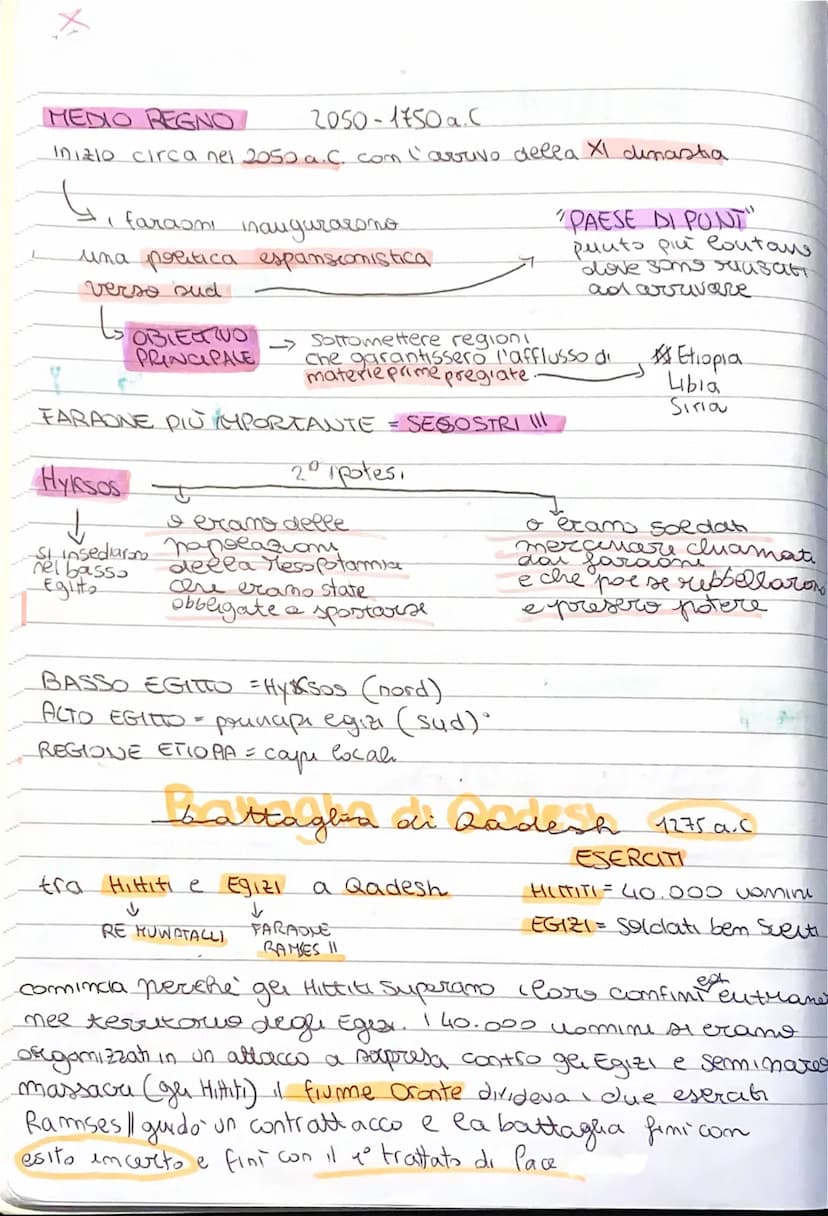 MEDIO REGNO 2050-1750 a.C
Inizio circa nel 2050 a.C. con l'arrivo della XI dinastia
i faraoni inaugurarono
una politica espansionistica
verso sud
"PAESE DI PUNT"
punto più lontano
dove sono riusciti
ad arrivare
OBIETTIVO
PRINCIPALE
sottomettere regioni
che garantissero l'afflusso di
materie prime pregiate
Etiopia
Libia
Siria
FARAONE PIÙ IMPORTANTE = SEGOSTRI III
Hyksos
2° ipotesi
si insediarono
nel basso
Egitto
o erano delle
popolazioni
della Mesopotamia
che erano state
obbligate a spostarsi
o erano soldati
mercenari chiamati
dai faraoni
e che poi se rebbellarono
e presero potere
BASSO EGITTO = Hyksos (nord)
ALTO EGITTO = principi egizi (sud)
REGIONE ETIOPA = capi locali
Battaglia di Qadesh
battaglia di Qadesh 1275 a.C
ESERCITI
tra Hittiti e Egizi a Qadesh
RE MUWATALLI
FARAONE
RAMSES II
HITTITI = 40.000 uomini
EGIZI = Soldati bem scelti
comincia perchè gli Hittiti Superano i loro confini ed entrano
nel territorio degli Egizi. I 40.000 uomini si erano
organizzati in un attacco a sorpresa contro gli Egizi e seminarono
massacri (gli Hittiti) il fiume Oronte divideva i due eserciti
Ramses II guidò un contrattacco e la battaglia finì con
esito incerto e finì con il 1° trattato di Pace